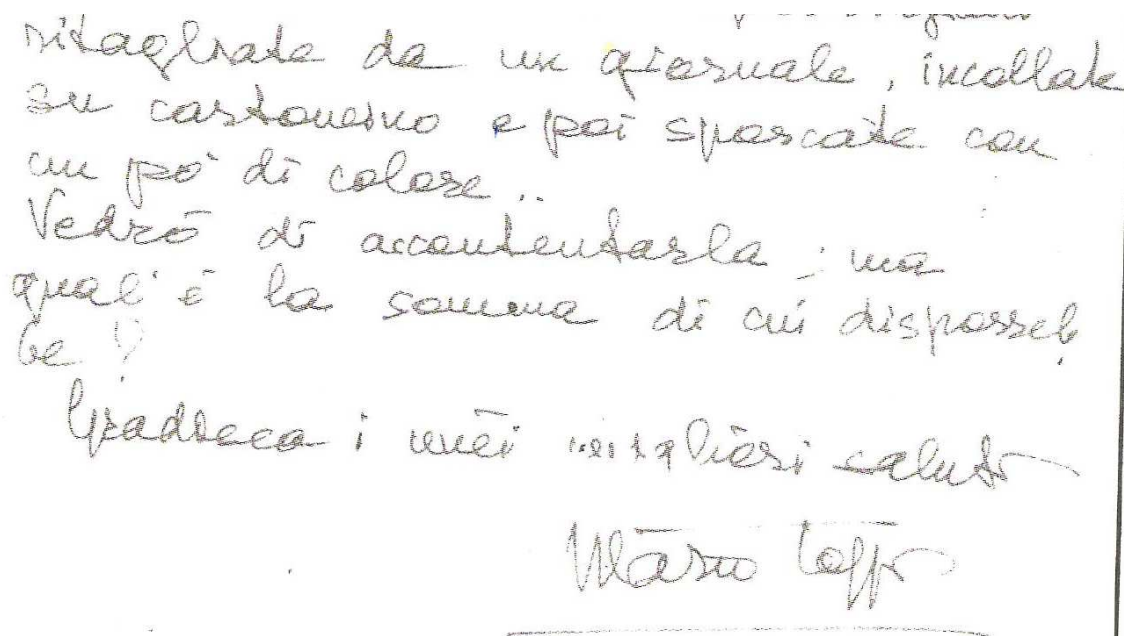 ritagliate da un giornale, incollate
su cartoncino e poi sporcate con
un po' di colore..
Vedrò di accontentarla; ma
qual'è la somma di cui disporreb
be?
Gradisca i miei migliori saluti
Mario